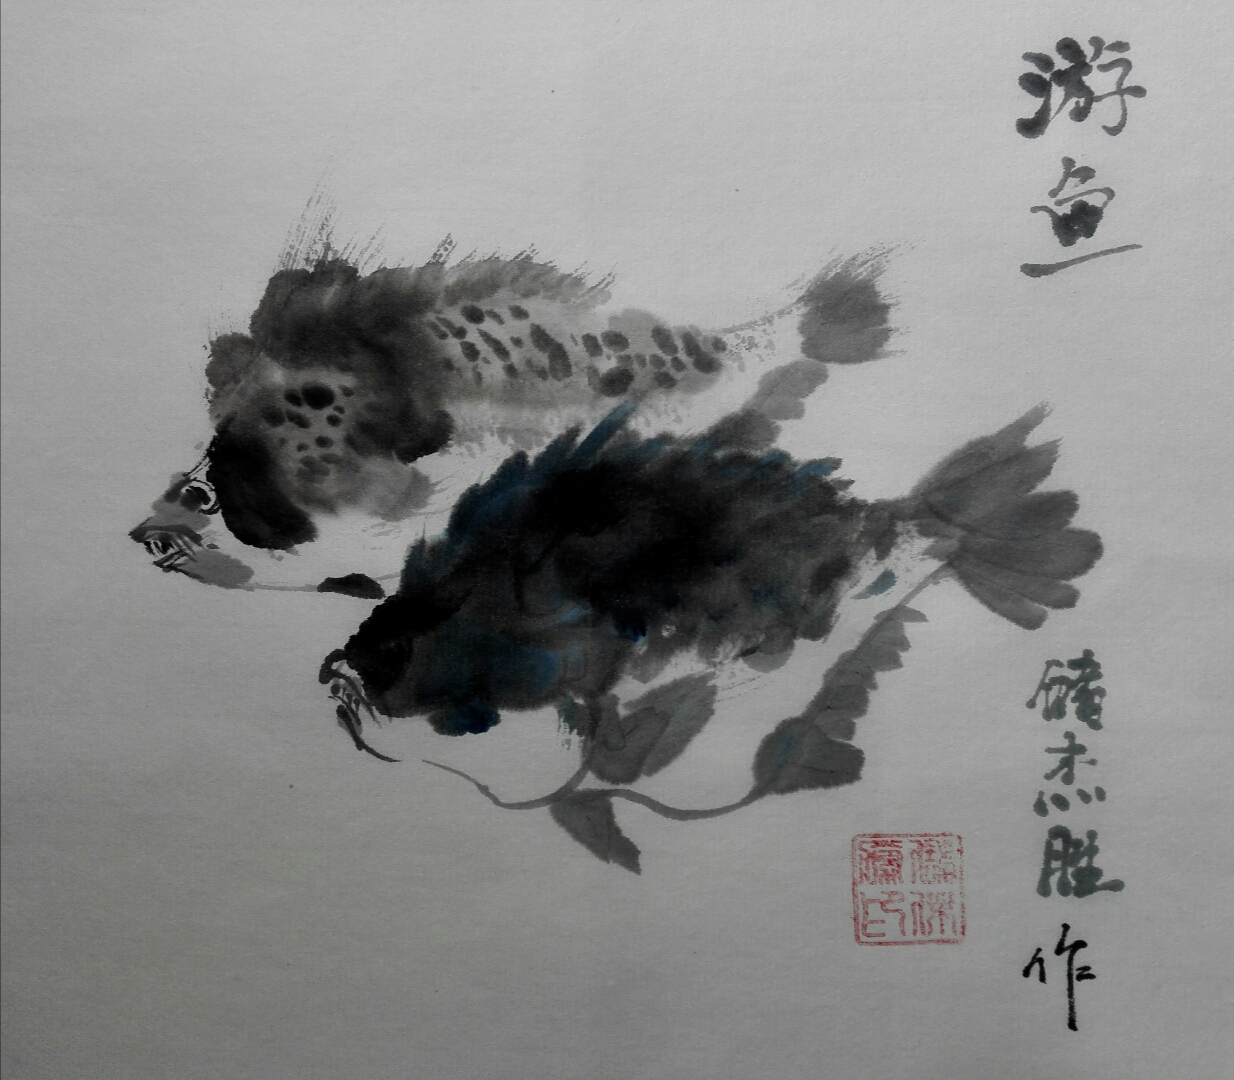 游鱼
储杰胜
作